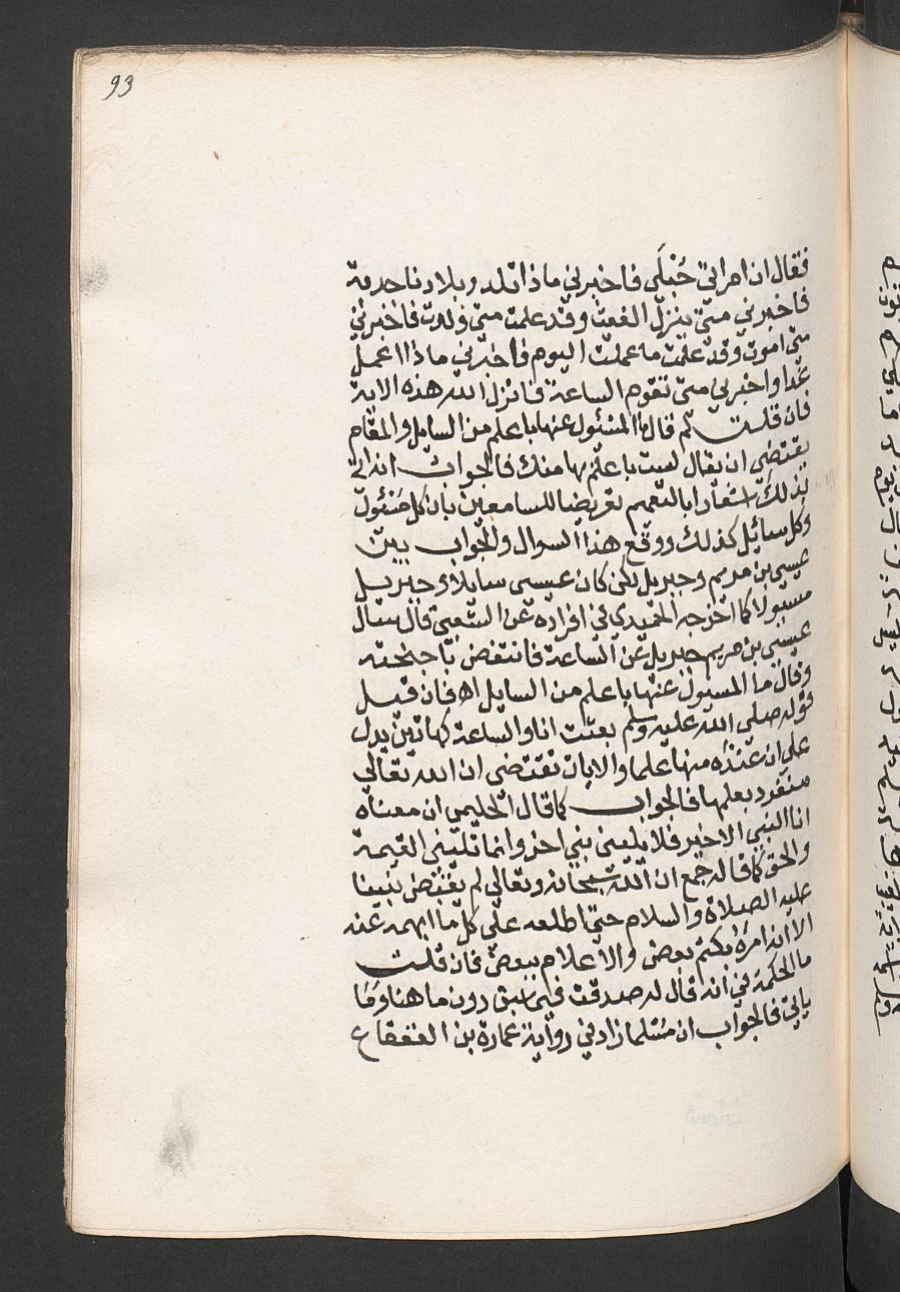 93
فقال ان امراتي حُبْلَى فاخبرني ماذا تلد وبلادنا جدبة
فاخبرني متى ينزل الغيث وقد علمت متى ولدت فاخبرني
متى اموت وقد علمت ما عملت اليوم فاخبرني ماذا اعمل
غدا واخبرني متى تقوم الساعة فانزل الله هذه الاية
فان قلت لم قال ما المسئول عنها باعلم من السايل والمقام
يقتضي ان يقال لست باعلم بها منك فالجواب انه اتى
بذلك اشعارا بالتعميم تعريضا للسامعين بان كل مسئول
وكل سائل كذلك ووقع هذا السوال والجواب بين
عيسى بن مريم وجبريل لكن كان عيسى سايلا وجبريل
مسيولا كما اخرجه الحميدي في افراده عن الشعبي قال سال
عيسى بن مريم جبريل عن الساعة فانتفض باجنحته
وقال ما المسيول عنها باعلم من السايل اه فان قيل
قوله صلى الله عليه وسلم بعثت انا والساعة كهاتين يدل
على ان عنده منها علما والايات تقتضي ان الله تعالى
منفرد بعلمها فالجواب كما قال الحليمي ان معناه
انا النبي الاخير فلا يليني نبي اخر وانما تليني القيمة
والحق كما قاله جمع ان الله سبحانه وتعالى لم يقبض نبينا
عليه الصلاة والسلام حتى اطلعه على كل ما ابهمه عنه
الا انه امره بكتم بعض والاعلام ببعض فان قلت
ما الحكمة في انه قال له صدقت فيما سبق دون ما هنا وما
ياتي فالجواب ان مسلما زاد في رواية عمارة بن القعقاع